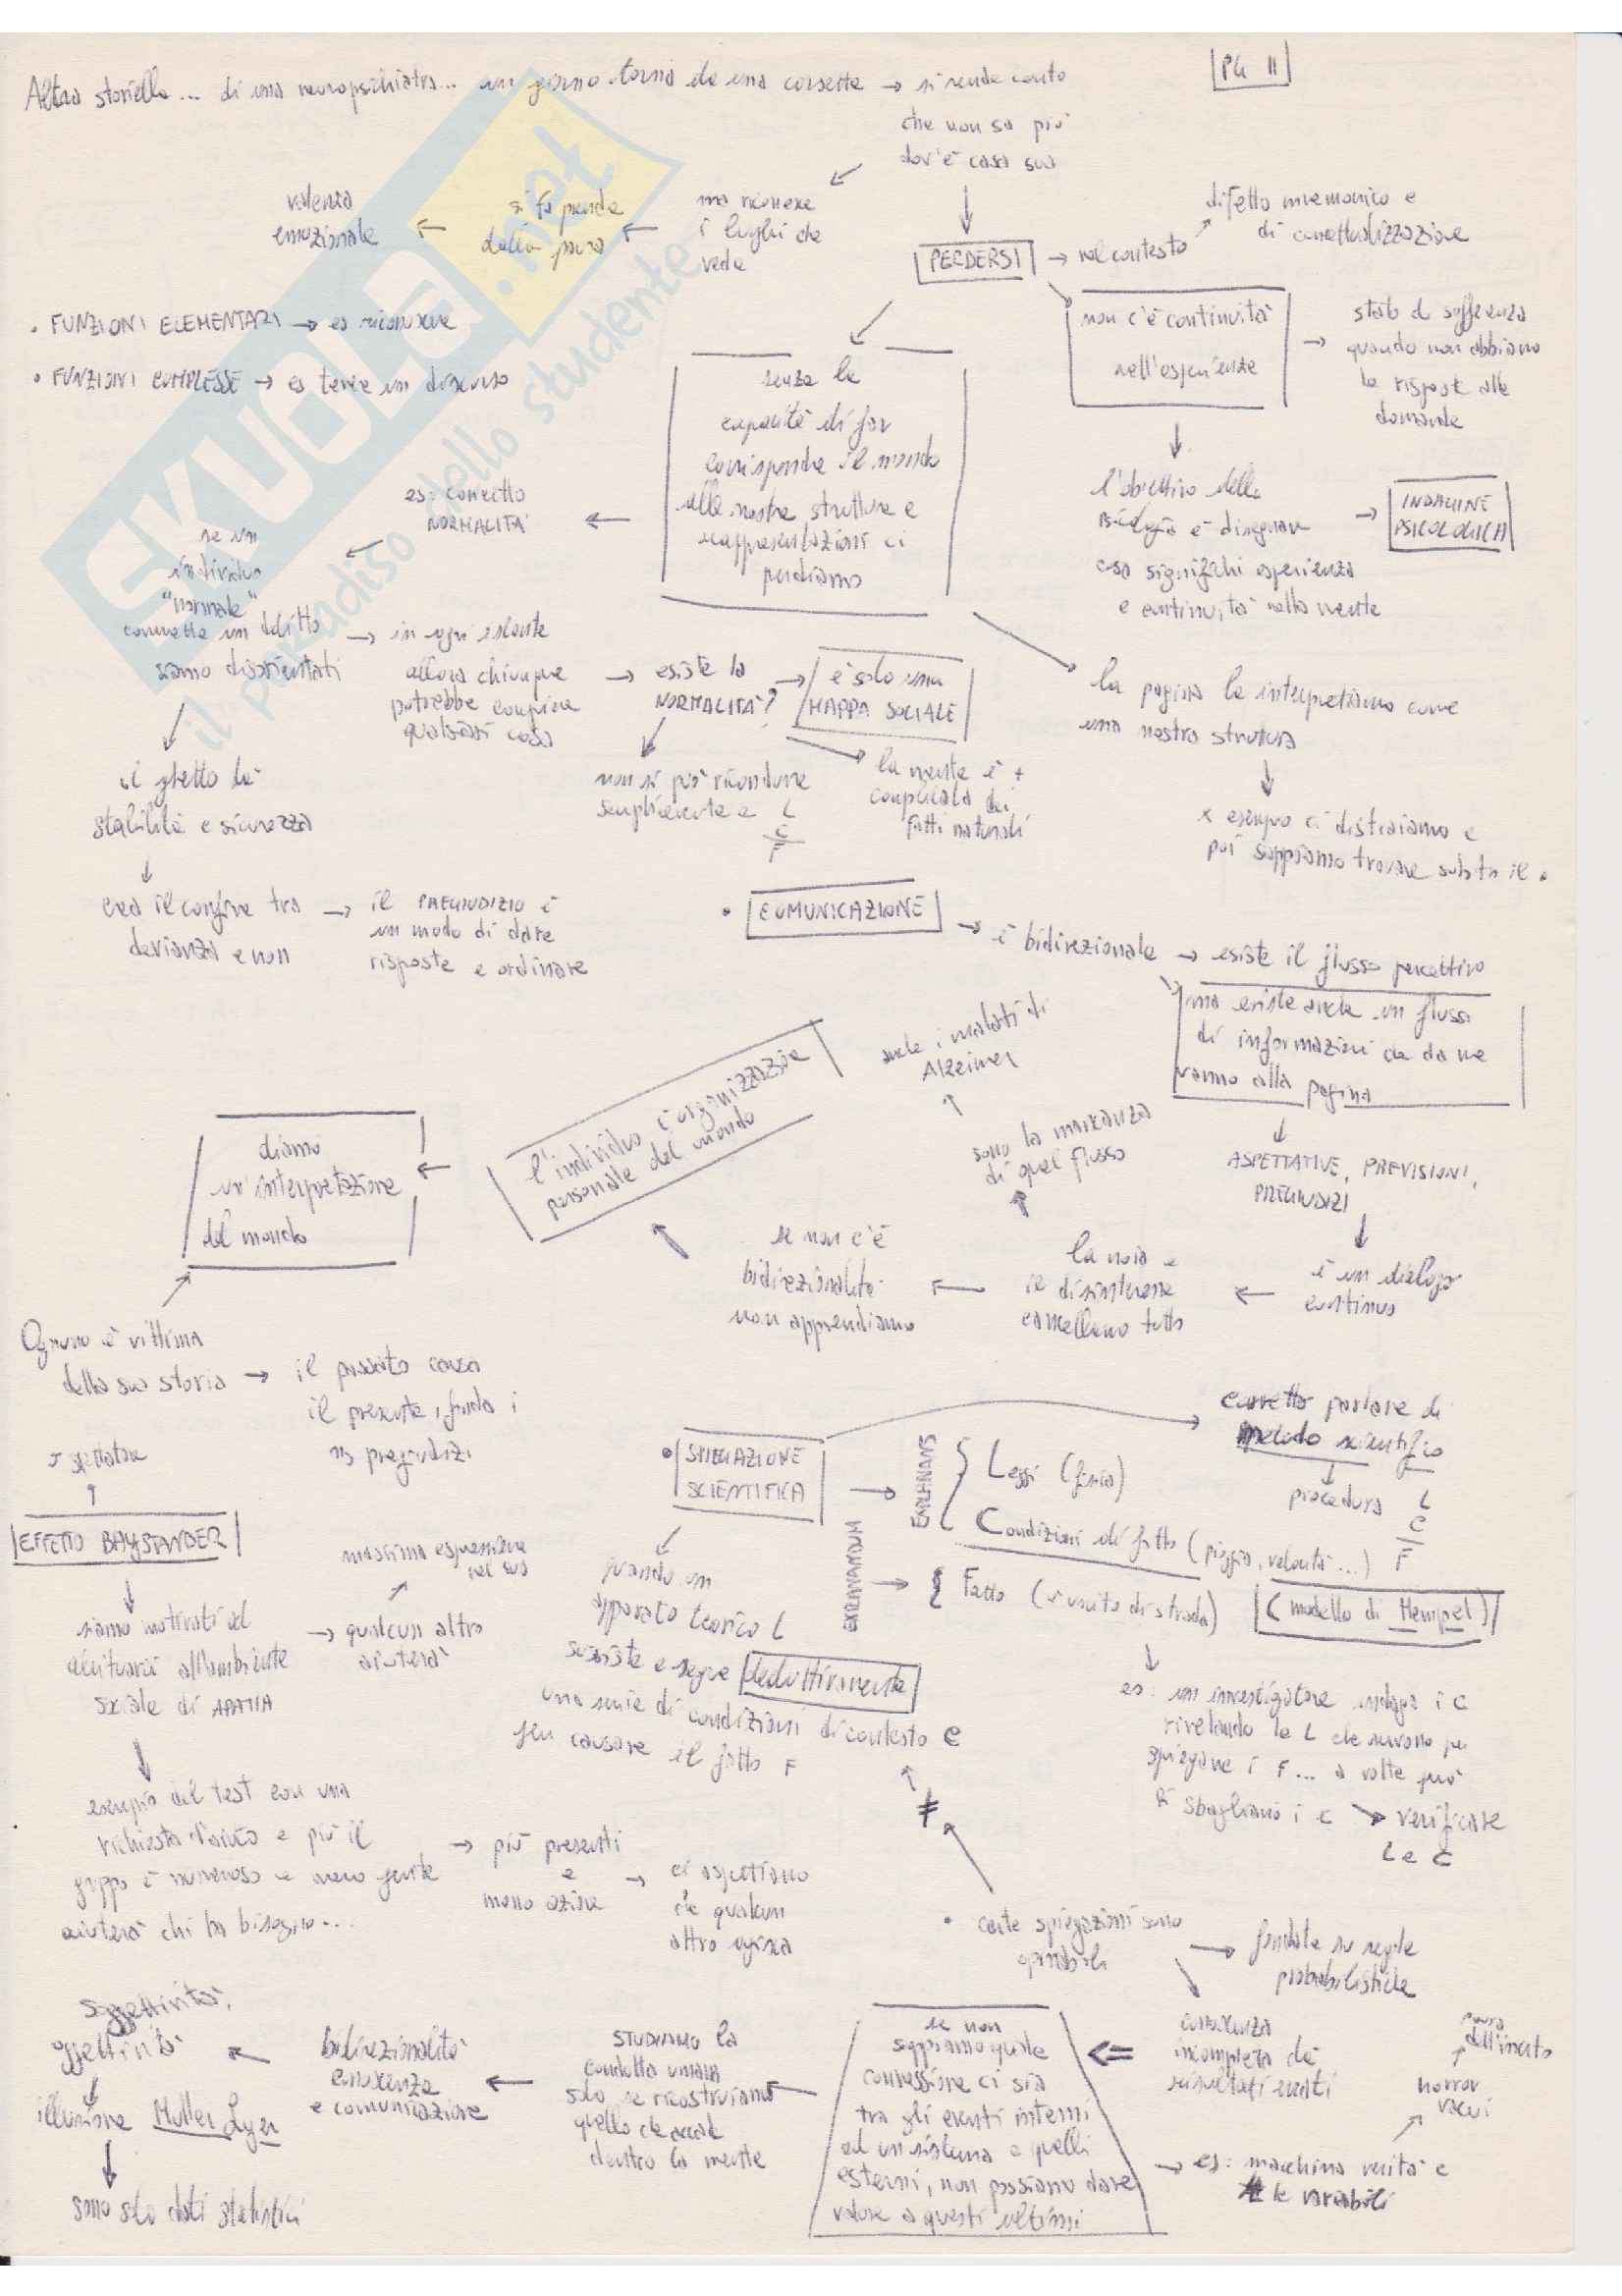 PG 11
Altra storiella... di una neuropsichiatra... un giorno torna da una conserte → si rende conto
che non sa più
dov'è casa sua
ma riconosce
i luoghi che
vede
si fa prende
dalla paura
valenza
emozionale
PERDERSI → nel contesto
difetto mnemonico e
di concettualizzazione
non c'è continuità
nell'esperienza
stato di sofferenza
quando non abbiamo
le risposte alle
domande
• FUNZIONI ELEMENTARI → es riconoscere
• FUNZIONI COMPLESSE → es tenere un discorso
senza la
capacità di far
corrispondere il mondo
alle nostre strutture e
rappresentazioni ci
perdiamo
l'obiettivo della
psicologia è disegnare
cosa significhi esperienza
e continuità nella mente
INDAGINE
PSICOLOGICA
es: concetto
NORMALITÀ
se un
individuo
"normale"
commette un delitto
siamo disorientati
in ogni istante
allora chiunque
potrebbe compiere
qualsiasi cosa
esiste la
NORMALITÀ?
è solo una
MAPPA SOCIALE
la pagina la interpretiamo come
una nostra struttura
il ghetto dà
stabilità e sicurezza
non si può ricondurre
semplicemente a L
C
F
la mente è +
complicata dei
fatti naturali
x esempio ci distraiamo e
poi sappiamo trovare subito il •
crea il confine tra
devianza e non
il PREGIUDIZIO è
un modo di dare
risposte e ordinare
• COMUNICAZIONE
è bidirezionale → esiste il flusso percettivo
ma esiste anche un flusso
di informazioni che da me
vanno alla pagina
anche i malati di
Alzeimer
l'individuo è organizzazione
personale del mondo
sono la mancanza
di quel flusso
ASPETTATIVE, PREVISIONI,
PREGIUDIZI
diamo
un'interpretazione
del mondo
se non c'è
bidirezionalità
non apprendiamo
la noia e
il disinteresse
cancellano tutto
è un dialogo
continuo
Ognuno è vittima
della sua storia → il passato causa
il presente, fonda i
ns pregiudizi
spettatore
EFFETTO BAYSTANDER
• SPIEGAZIONE
SCIENTIFICA
corretto parlare di
metodo scientifico
procedura L
C
F
EXPLANANS
Leggi (fisica)
Condizioni di fatto (pioggia, velocità...)
EXPLANANDUM
Fatto (è uscito di strada)
(modello di Hempel)
massima espressione
nel sud
siamo motivati ed
abituati all'ambiente
sociale di APATIA
qualcun altro
aiuterà
quando un
apparato teorico L
sussiste e segue deduttivamente
una serie di condizioni di contesto C
per causare il fatto F
es: un investigatore indaga i C
rivelando le L che servono per
spiegare i F... a volte però
sbagliano i C → verificare
L e C
esempio del test con una
richiesta d'aiuto e più il
gruppo è numeroso e meno gente
aiuterà chi ha bisogno...
più presenti
e
meno azione
ci aspettiamo
che qualcun
altro agisca
≠
• certe spiegazioni sono
opinabili
fondate su regole
probabilistiche
conoscenza
incompleta dei
risultati eventi
paura
dell'incerto
horror
vacui
se non
sappiamo quale
connessione ci sia
tra gli eventi interni
ad un sistema e quelli
esterni, non possiamo dare
valore a questi ultimi
es: macchina verità e
le variabili
STUDIAMO la
condotta umana
solo se ricostruiamo
quello che accade
dentro la mente
bidirezionalità
conoscenza
e comunicazione
soggettività,
oggettività
illusione Muller Lyer
sono solo dati statistici
SKUOLA.net
il paradiso dello studente